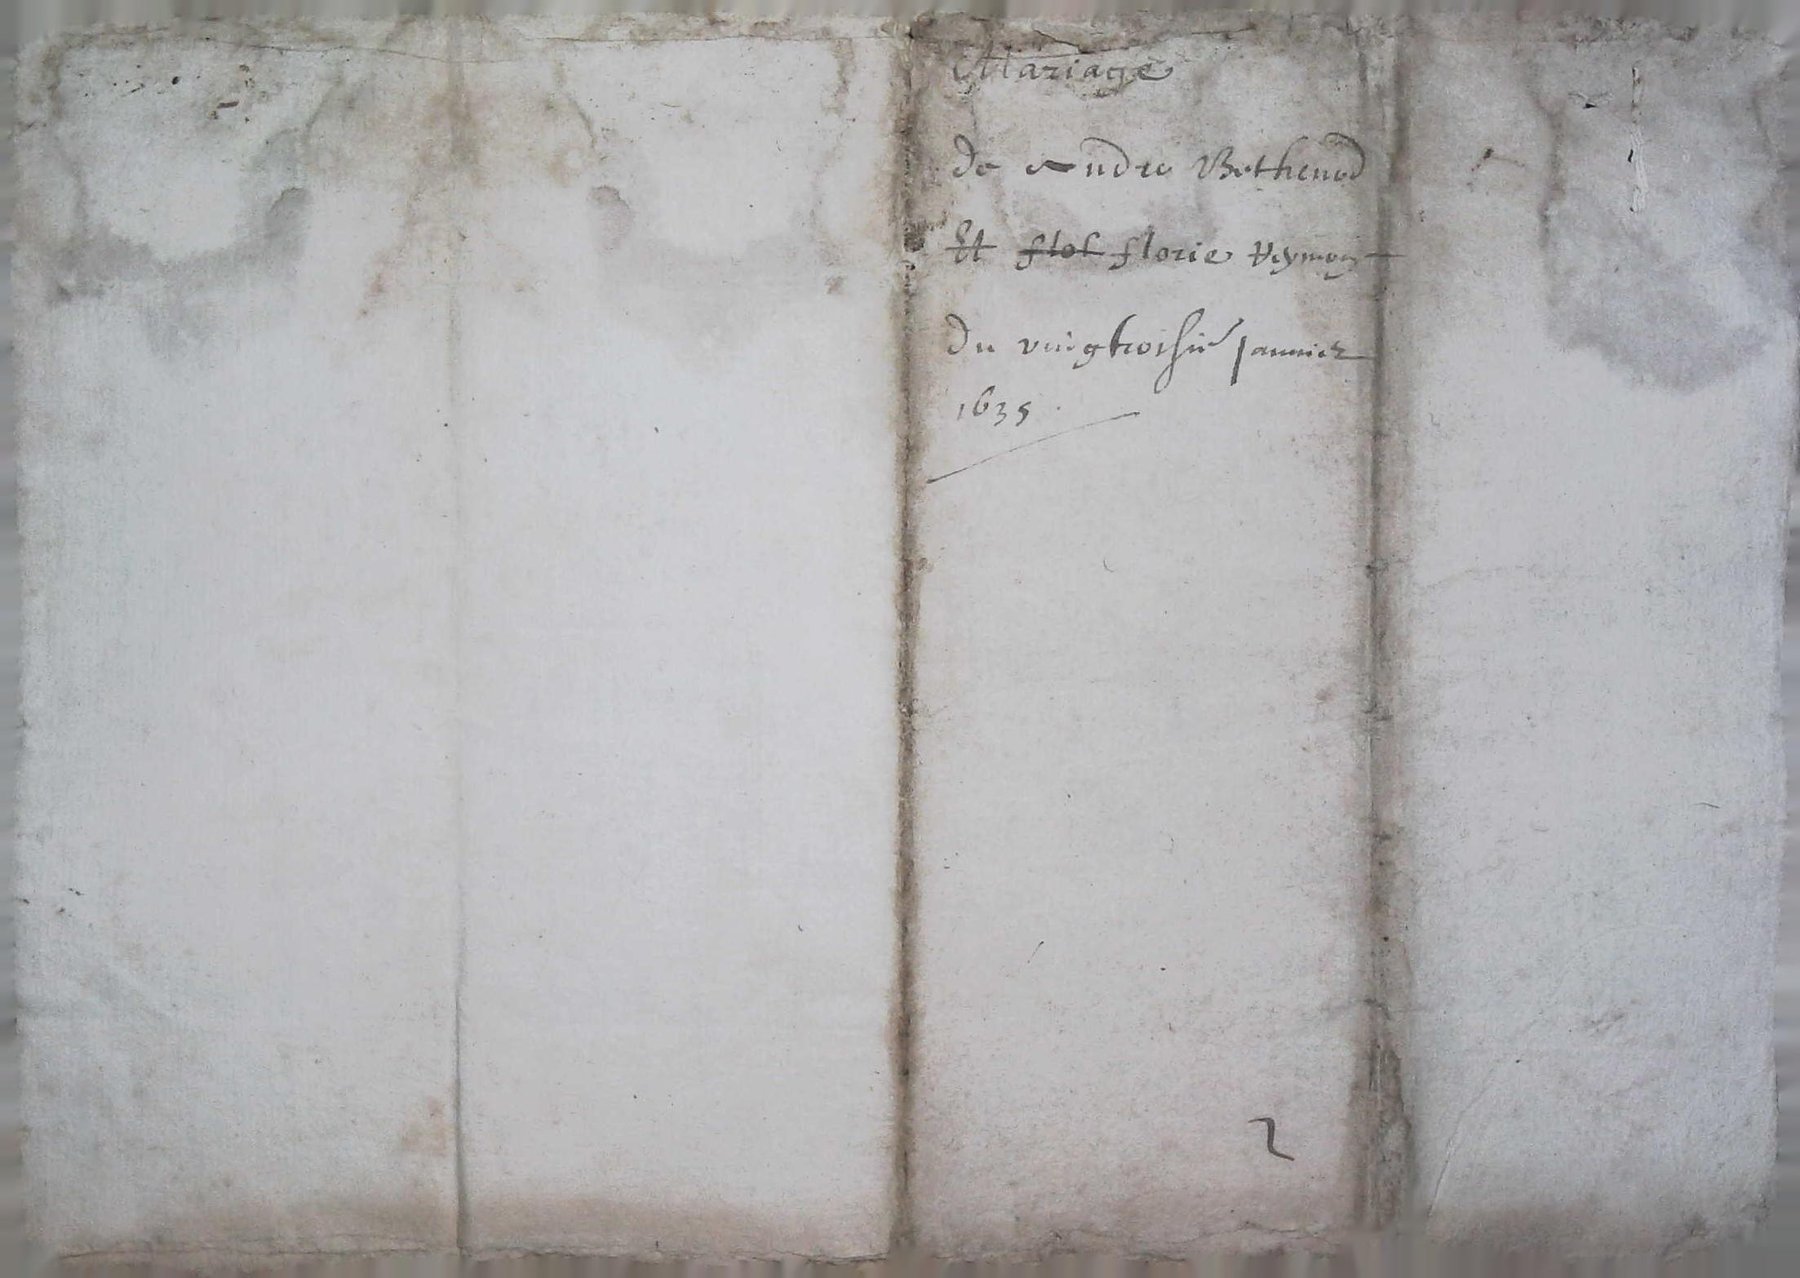 Mariage
de Andre Bothenod
Et flot florie Veymon
du vingtroisie Januier
1635.
2